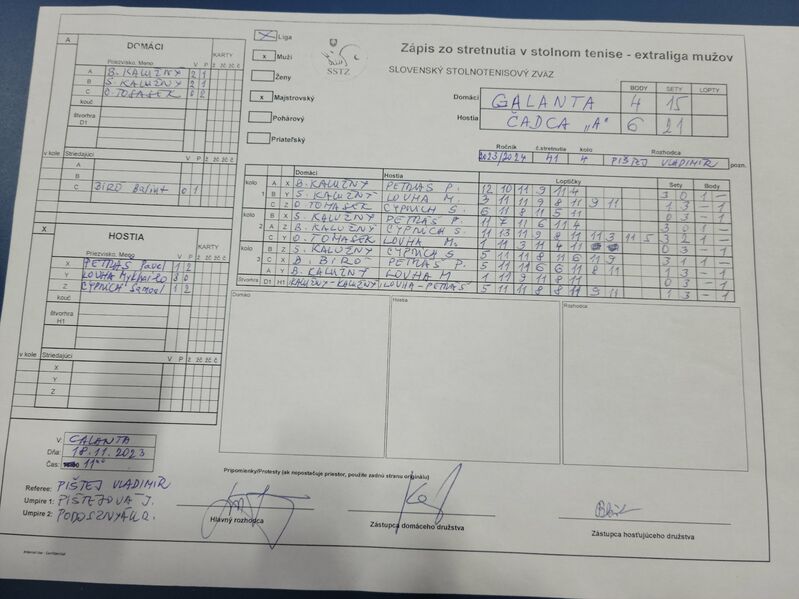 Zápis zo stretnutia v stolnom tenise - extraliga mužov
SLOVENSKÝ STOLNOTENISOVÝ ZVÄZ
SSTZ
Liga
x Muži
Ženy
x Majstrovský
Pohárový
Priateľský
BODY SETY LOPTY
Domáci GALANTA 4 15
Hostia ČADCA „A" 6 21
Ročník č.stretnutia kolo Rozhodca
2023/2024 41 4 PIŠTEJ VLADIMÍR pozn.
A DOMÁCI
Priezvisko, Meno V P KARTY
A B. KALUŽNÝ 2 1
B S. KALUŽNÝ 2 1
C O. TOMASEK 0 2
kouč
štvorhra D1
v kole Striedajúci V P ž žč žč č
A
B
C BIRO Balint 0 1
X HOSTIA
Priezvisko, Meno V P ž žč žč č KARTY
X PETRAŠ Pavel 1 2
Y LOVHA Mykhailo 3 0
Z CYPRICH Samuel 1 2
kouč
štvorhra H1
v kole Striedajúci V P ž žč žč č
X
Y
Z
Domáci Hostia Loptičky Sety Body
kolo 1 A X B. KALUŽNÝ PETRAŠ P. 12 10 11 9 11 4 3 0 1 -
B Y S. KALUŽNÝ LOVHA M. 3 11 11 9 8 11 9 11 1 3 - 1
C Z O. TOMASEK CYPRICH S. 6 11 8 11 5 11 0 3 - 1
kolo 2 B X S. KALUŽNÝ PETRAŠ P. 11 7 11 6 11 4 3 0 1 -
A Z B. KALUŽNÝ CYPRICH S. 11 13 11 9 8 11 11 3 11 5 3 2 1 -
C Y O. TOMASEK LOVHA M. 1 11 3 11 4 11 0 3 - 1
kolo 3 B Z S. KALUŽNÝ CYPRICH S 5 11 11 8 11 6 11 9 3 1 1 -
C X B. BIRO PETRAŠ P. 5 11 11 6 6 11 8 11 1 3 - 1
A Y B. KALUŽNÝ LOVHA M 1 11 9 11 8 11 0 3 - 1
Štvorhra D1 H1 KALUŽNÝ-KALUŽNÝ LOVHA-PETRAŠ 5 11 11 8 8 11 9 11 1 3 - 1
Domáci
Hostia
Rozhodca
V: GALANTA
Dňa: 18.11.2023
Čas: 11 00
Pripomienky/Protesty (ak nepostačuje priestor, použite zadnú stranu originálu)
Referee: PIŠTEJ VLADIMÍR
Umpire 1: PIŠTEJOVÁ J.
Umpire 2:
Hlavný rozhodca
Zástupca domáceho družstva
Zástupca hosťujúceho družstva
Internal Use - Confidential